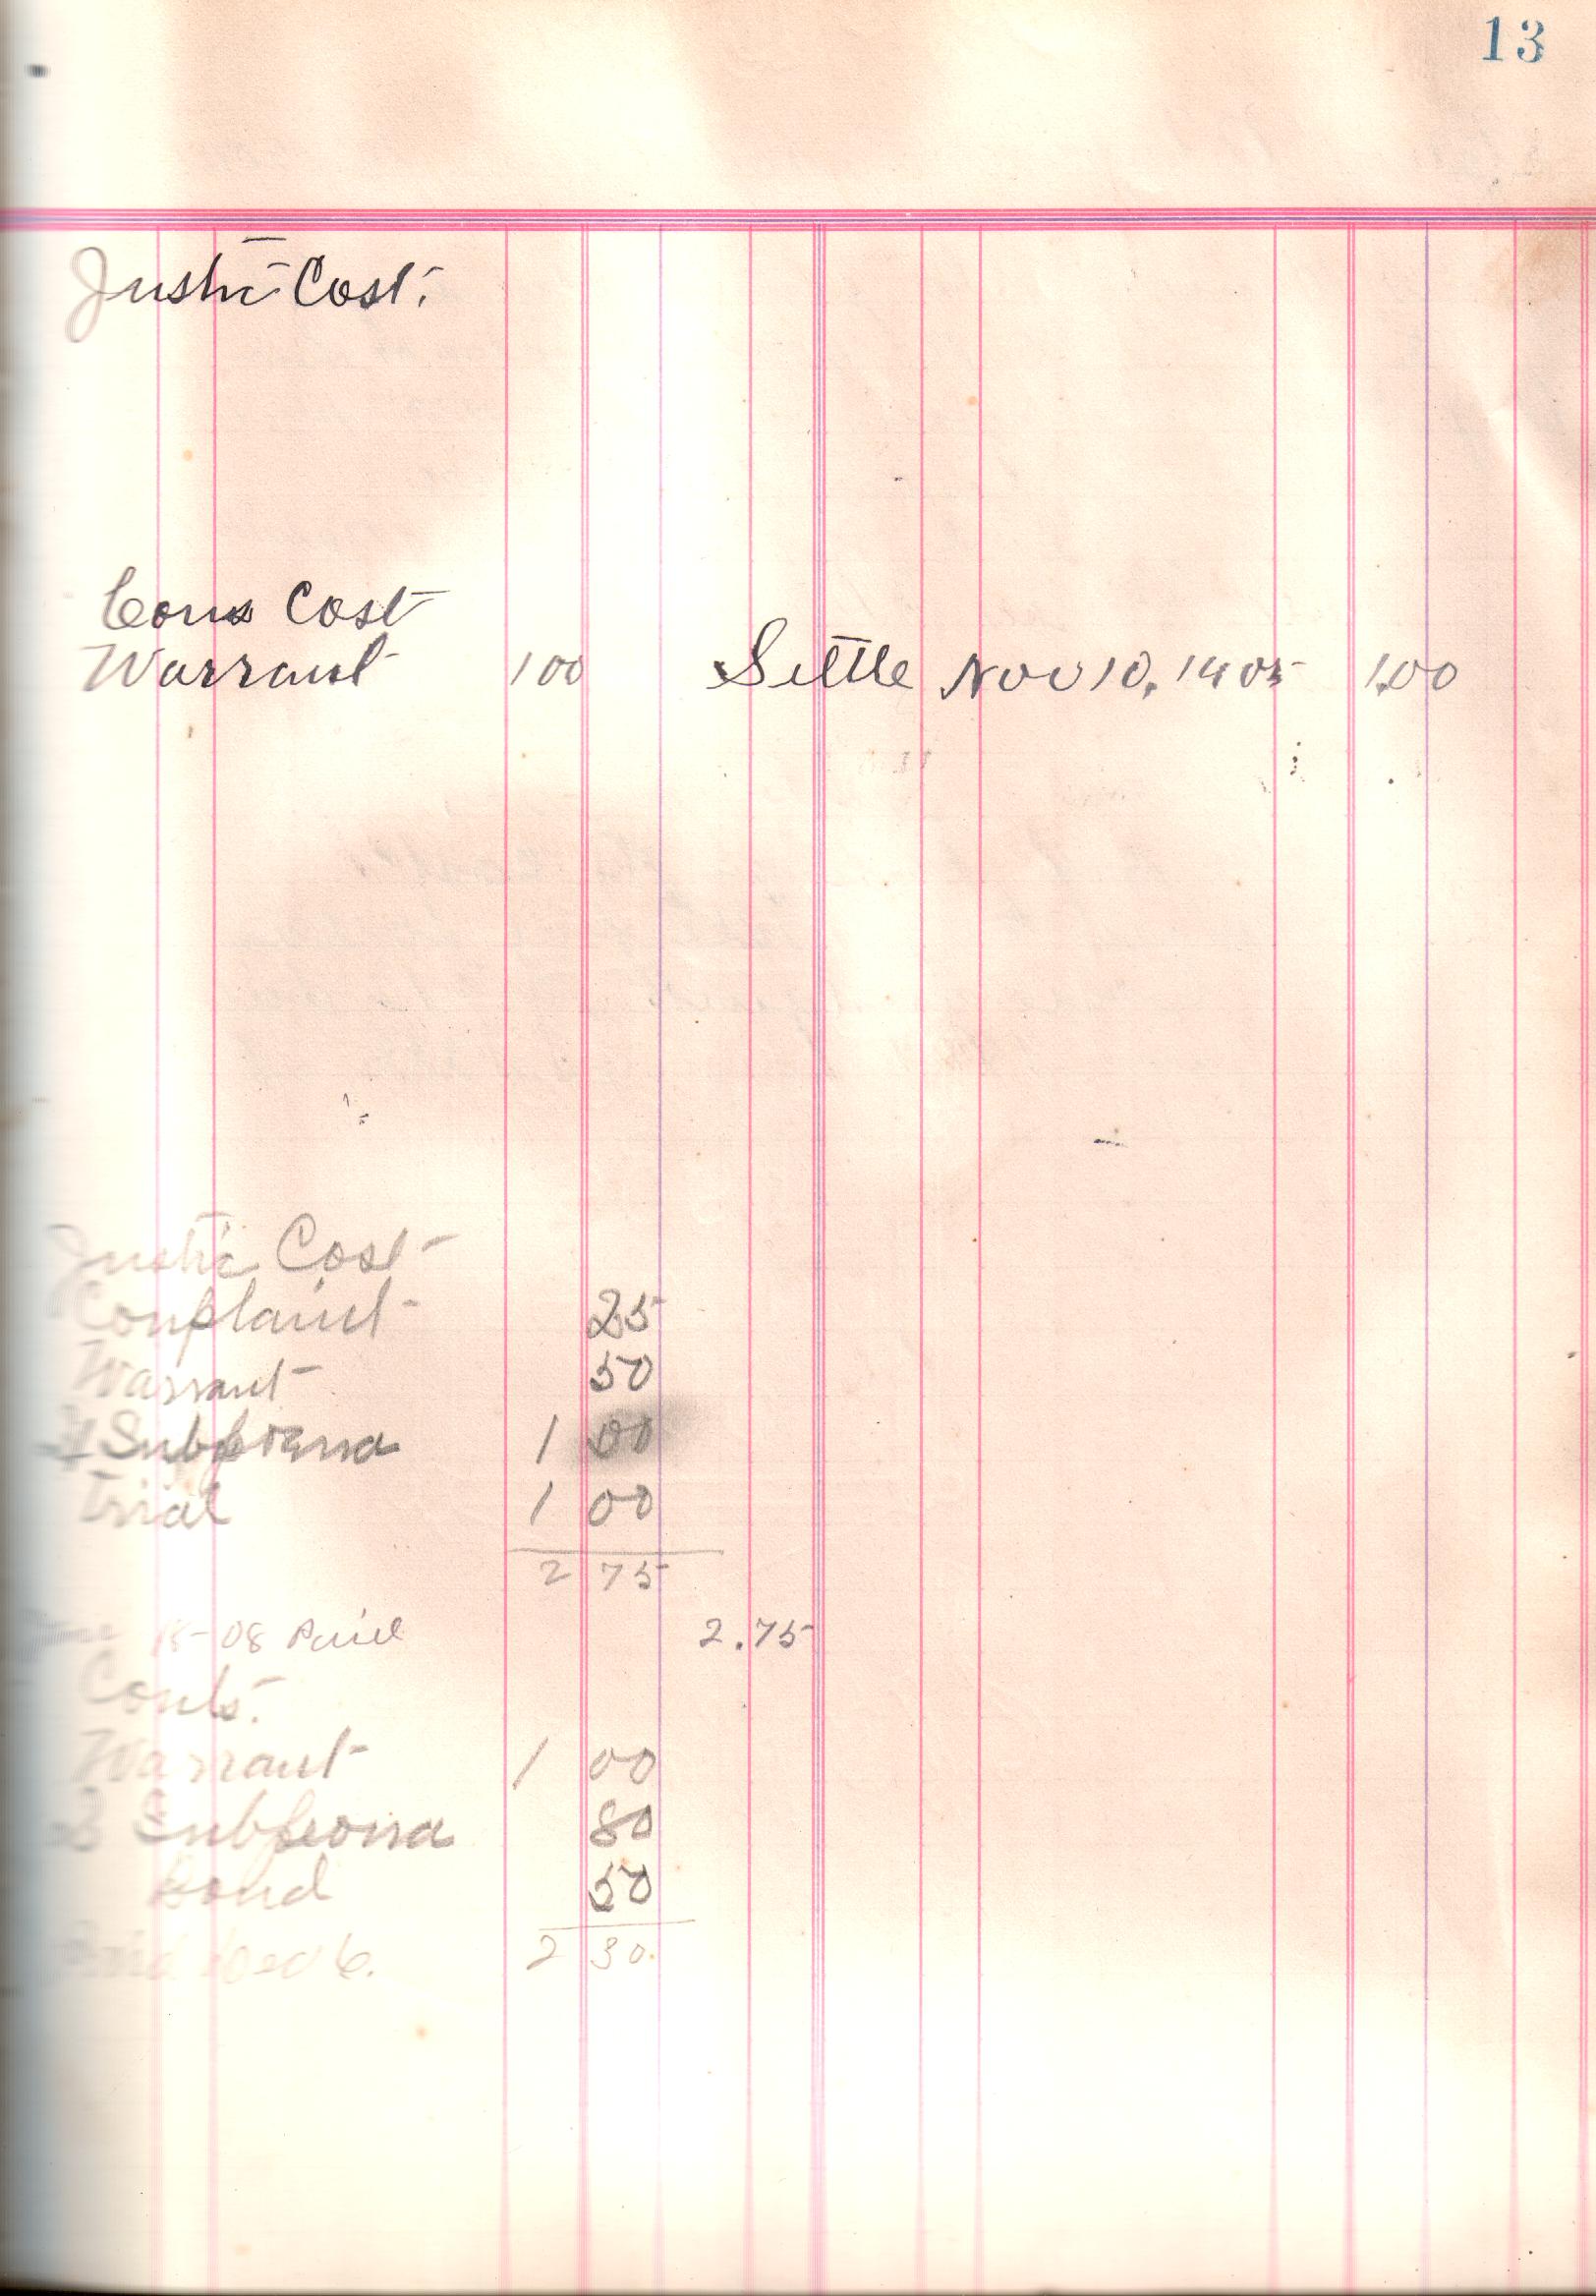 13
Justic Cost.
Cons Cost
Warrant 1 00 Settle Nov 10, 1905 1.00
Justic Cost
Complaint 25
Warrant 50
4 Subpoena 1 00
Trial 1 00
2 75
15-08 Paid 2.75
Conts.
Warrant 1 00
Subpeona 80
Bond 50
Paid Dec 6. 2 30